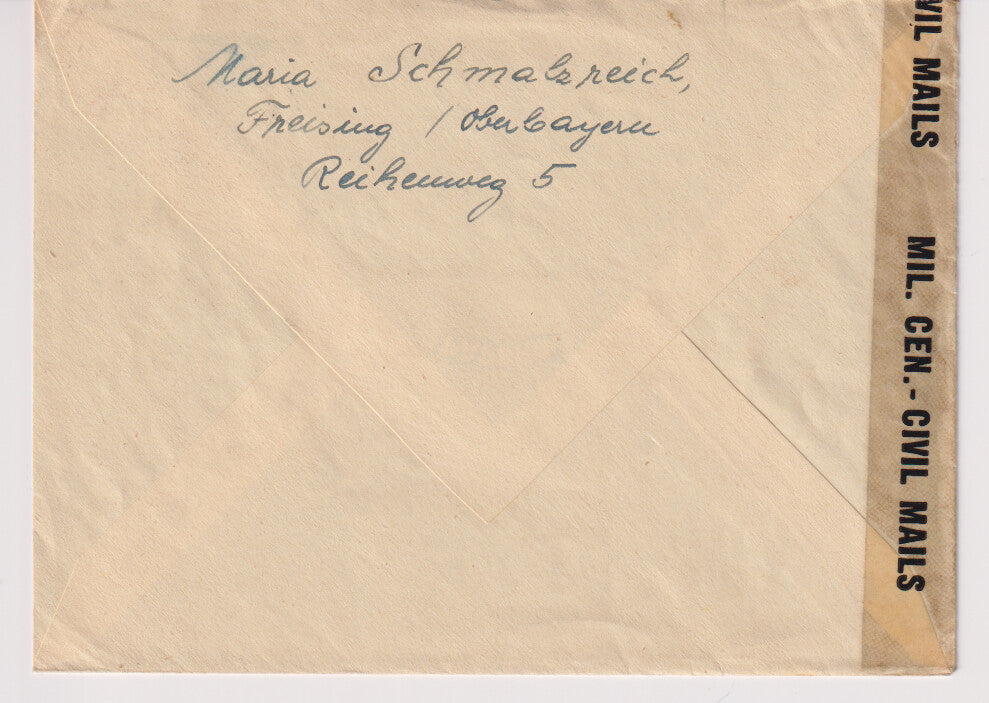 Maria Schmalzreich,
Freising / Oberbayern
Reihenweg 5
VIL MAILS
MIL. CEN.- CIVIL MAILS